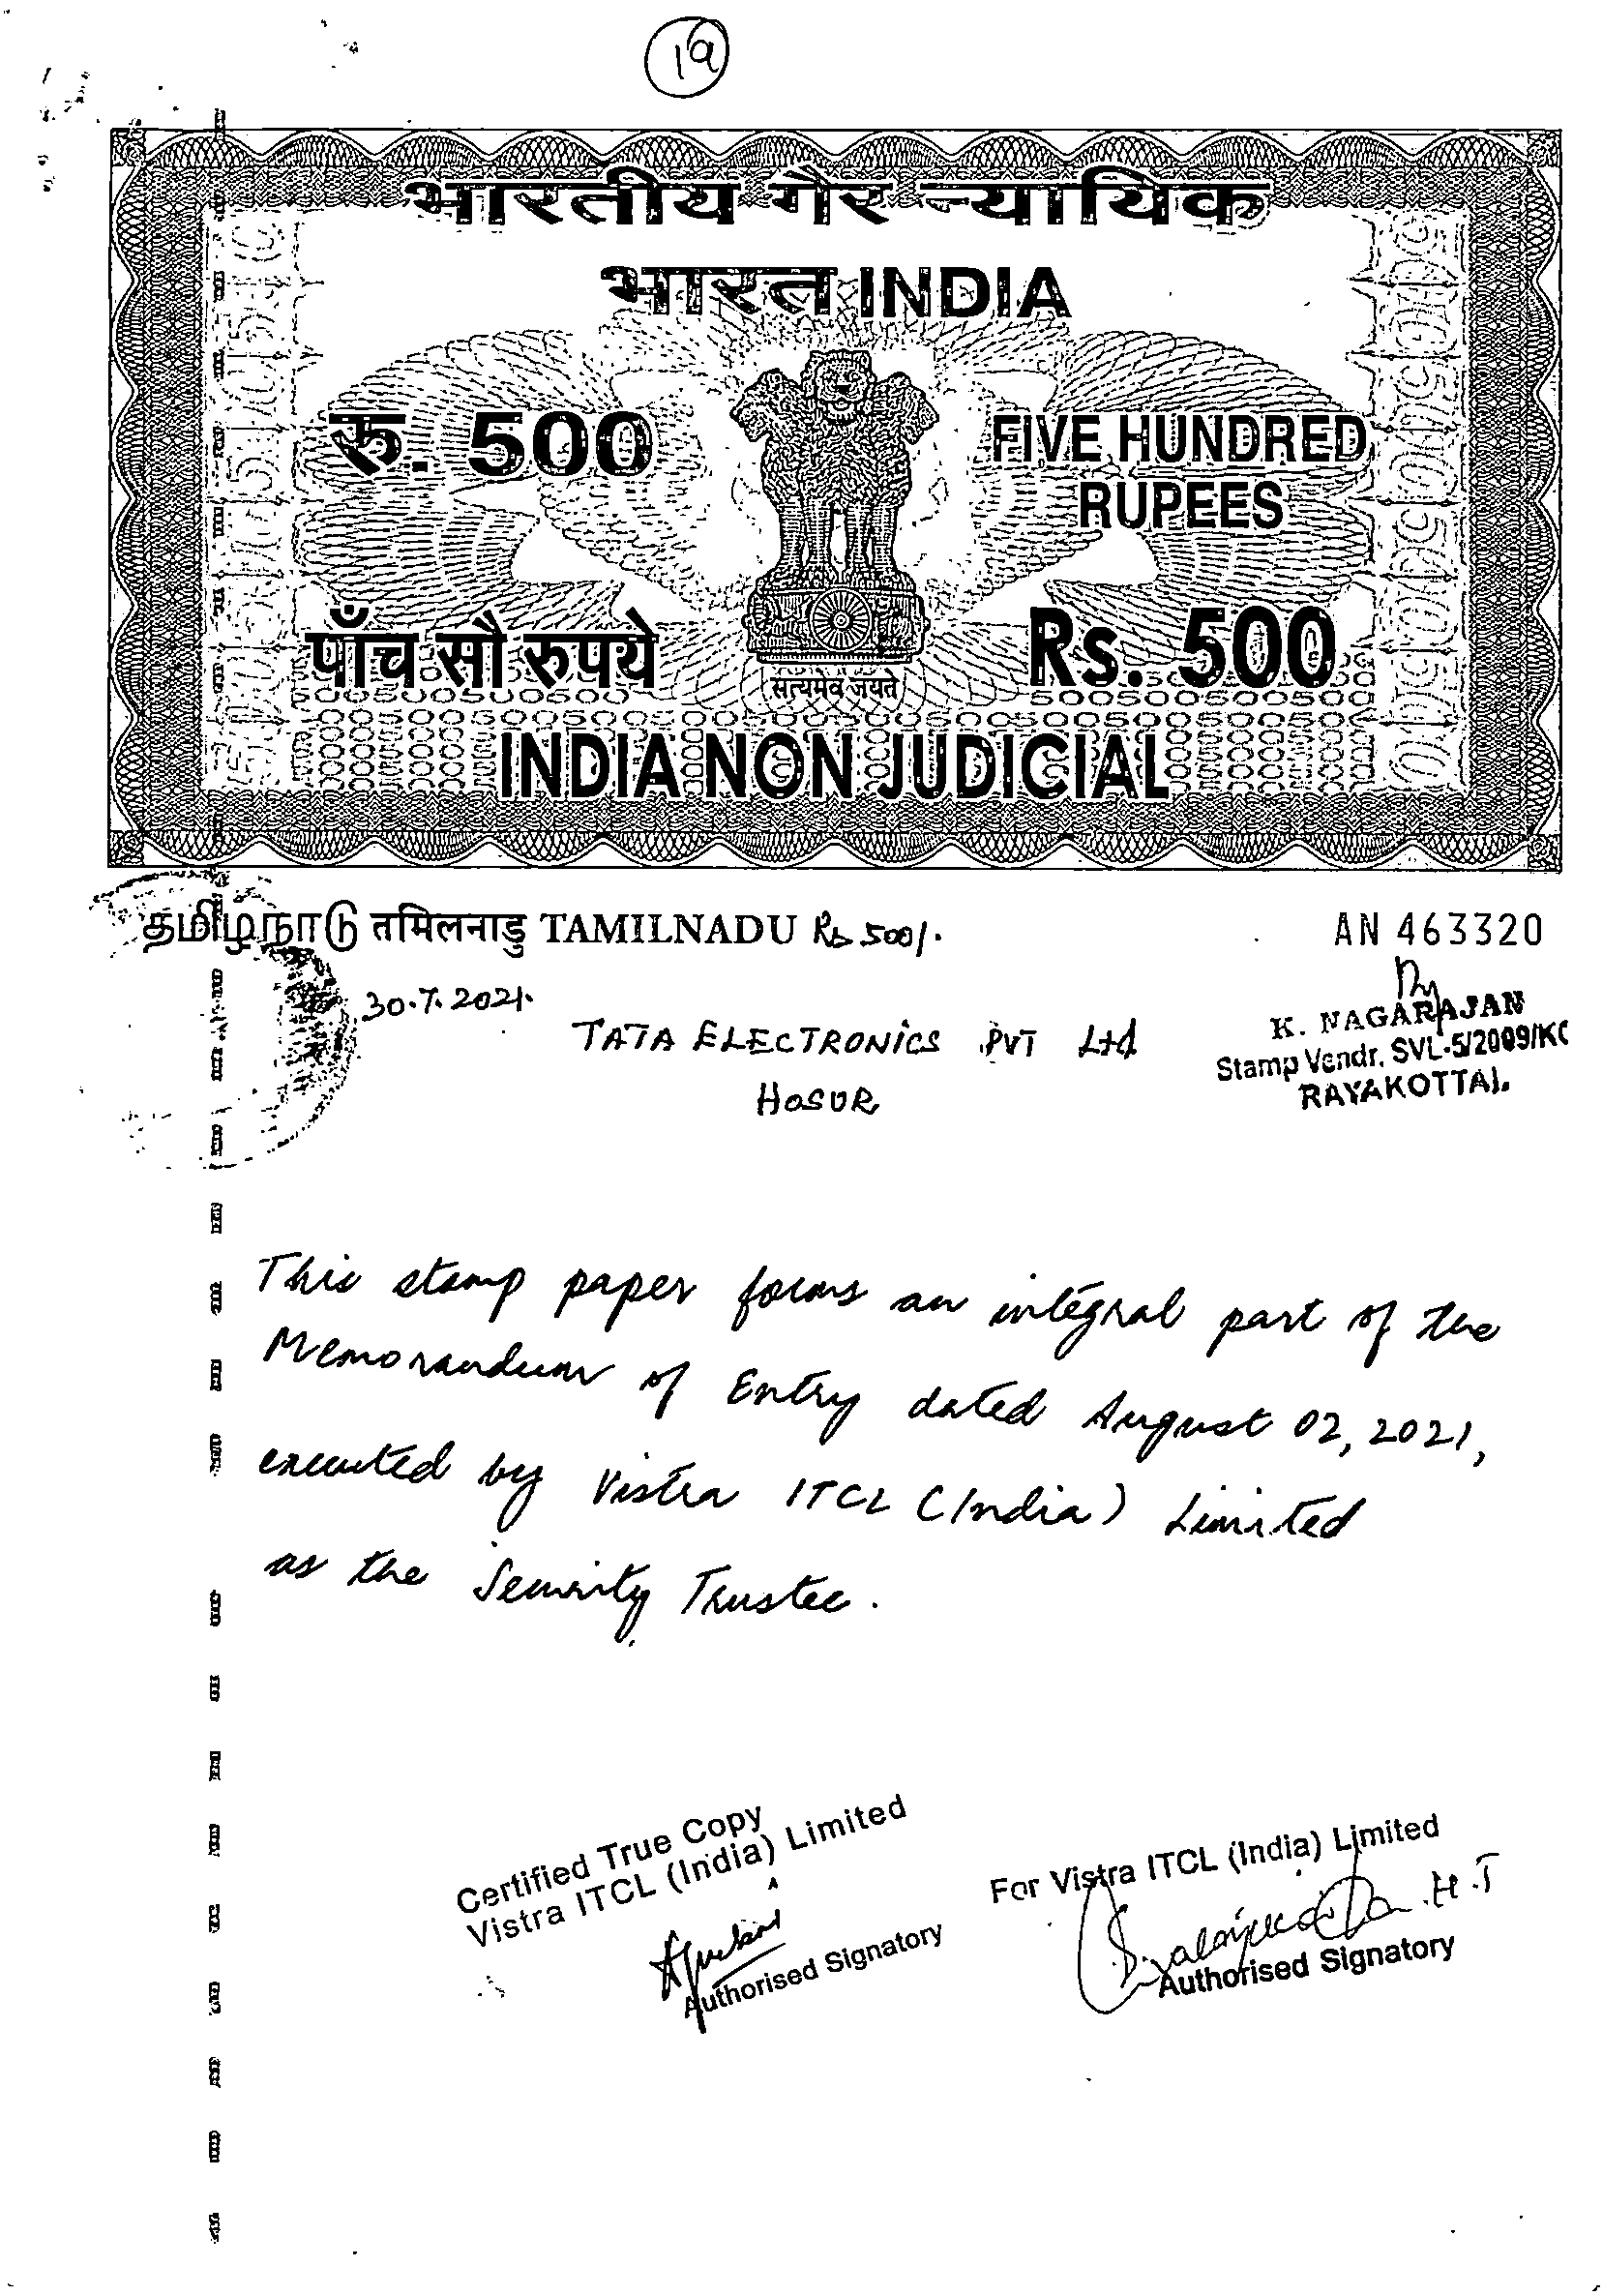 19
भारतीय गैर न्यायिक
भारत INDIA
रु. 500
FIVE HUNDRED
RUPEES
पाँच सौ रुपये
Rs. 500
सत्यमेव जयते
INDIA NON JUDICIAL
தமிழ்நாடு तमिलनाडु TAMILNADU Rs 500/.
AN 463320
30.7.2021.
TATA ELECTRONICS PVT Ltd
HOSUR
K. NAGARAJAN
Stamp Vendr. SVL-5/2009/K
RAYAKOTTAI.
This stamp paper forms an integral part of the
Memorandum of Entry dated August 02, 2021,
executed by Vistra ITCL (India) Limited
as the Security Trustee.
Certified True Copy
Vistra ITCL (India) Limited
Authorised Signatory
For Vistra ITCL (India) Limited
H.T
Authorised Signatory